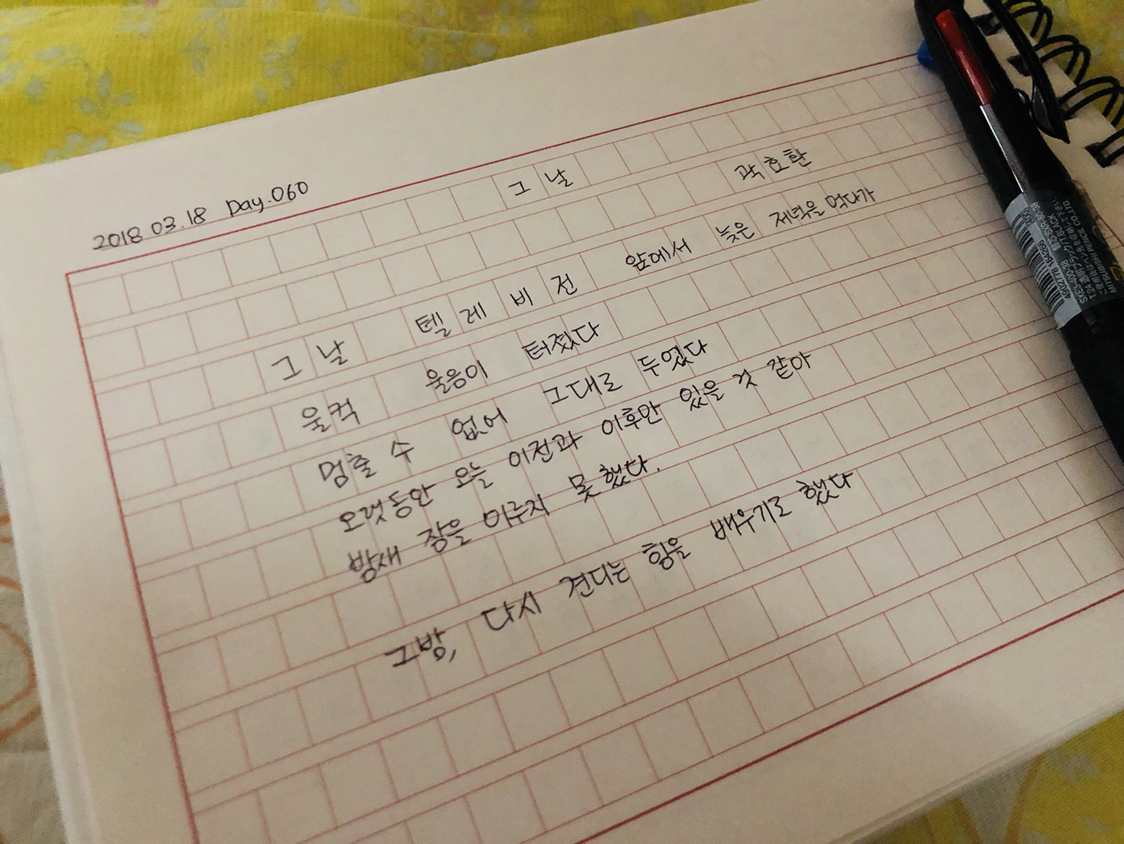 2018.03.18 Day.060
그날
곽효환
그날 텔레비전 앞에서 늦은 저녁을 먹다가
울컥 울음이 터졌다
멈출 수 없어 그대로 두었다
오랫동안 오늘 이전과 이후만 있을 것 같아
밤새 잠을 이루지 못했다.
그밤, 다시 견디는 힘을 배우기로 했다